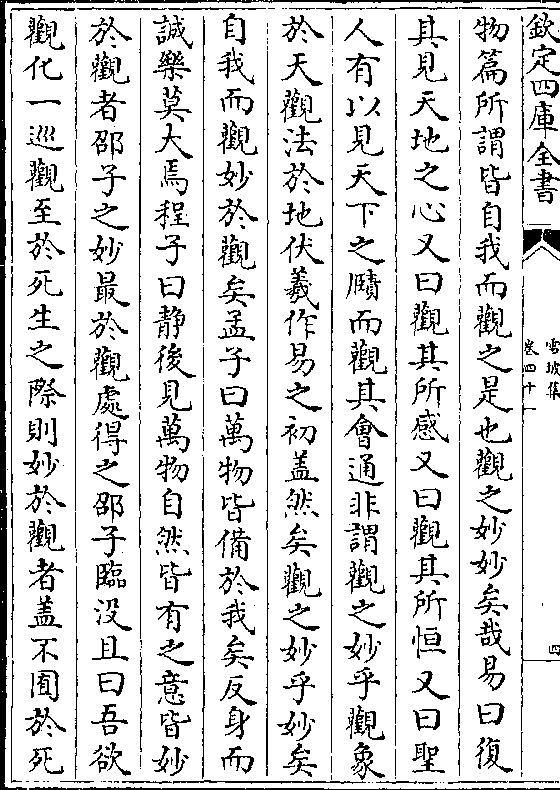 欽定四庫全書
雪坡集
卷四十一
四
物篇所謂皆自我而觀之是也觀之妙妙矣哉易曰復
其見天地之心又曰觀其所感又曰觀其所恒又曰聖
人有以見天下之賾而觀其會通非謂觀之妙乎觀象
於天觀法於地伏羲作易之初盖然矣觀之妙乎妙矣
自我而觀妙於觀矣孟子曰萬物皆備於我矣反身而
誠樂莫大焉程子曰静後見萬物自然皆有之意皆妙
於觀者邵子之妙最於觀處得之邵子臨没且曰吾欲
觀化一巡觀至於死生之際則妙於觀者盖不囿於死